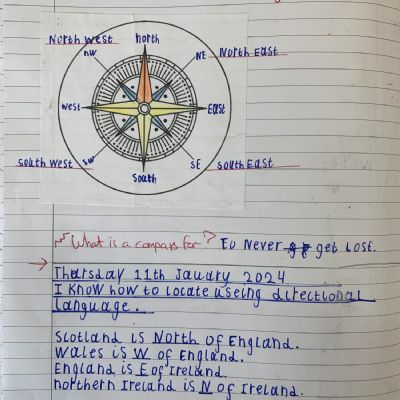 North West
north
nw
NE North East
west
East
South West
sw
SE South East
South
What is a compass for? to Never get lost.
Thursday 11th Jauary 2024
I know how to locate useing directional
language.
Scotland is North of England.
Wales is W of England.
England is E of Ireland.
northern Ireland is N of Ireland.